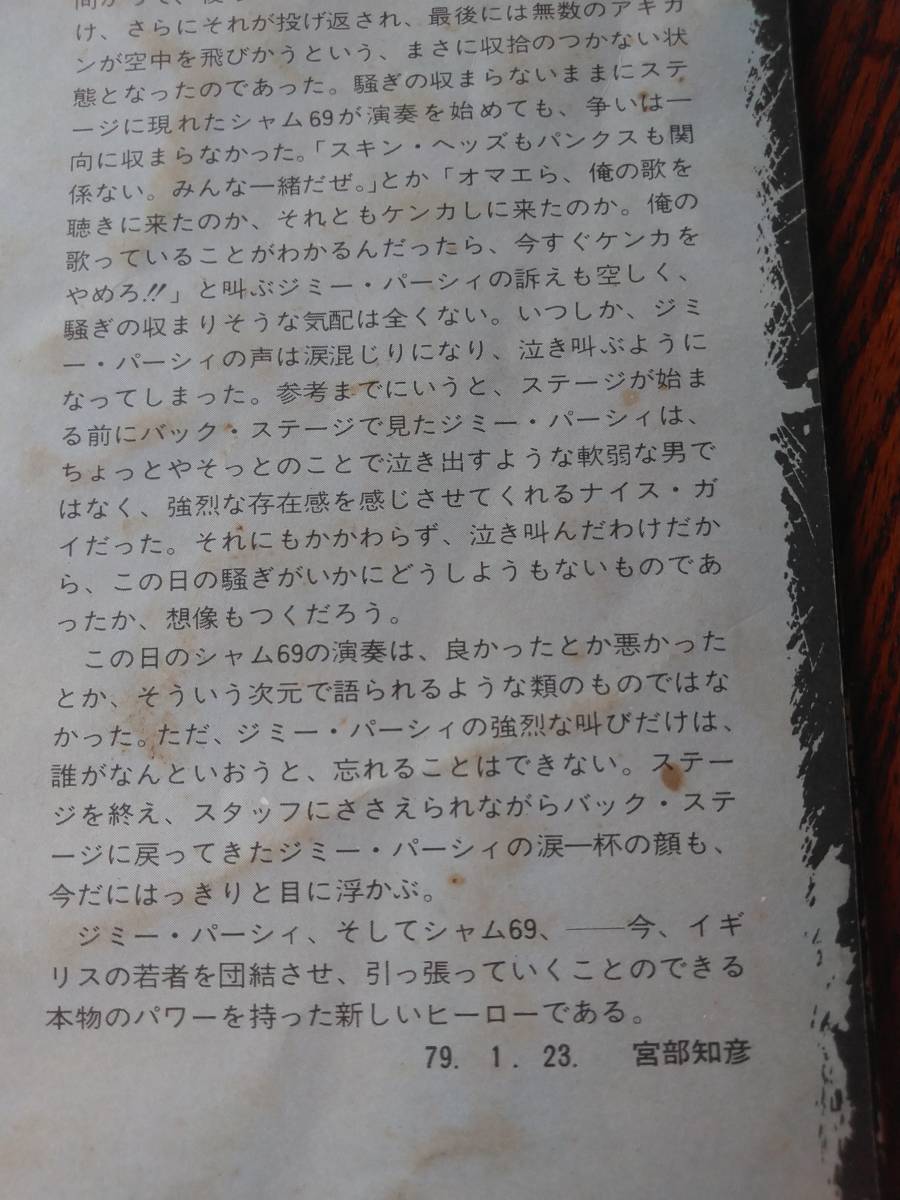 け、さらにそれが投げ返され、最後には無数のアキカ
ンが空中を飛びかうという、まさに収拾のつかない状
態となったのであった。騒ぎの収まらないままにステ
ージに現れたシャム69が演奏を始めても、争いは一
向に収まらなかった。「スキン・ヘッズもパンクスも関
係ない。みんな一緒だぜ。」とか「オマエら、俺の歌を
聴きに来たのか、それともケンカしに来たのか。俺の
歌っていることがわかるんだったら、今すぐケンカを
やめろ!!」と叫ぶジミー・パーシィの訴えも空しく、
騒ぎの収まりそうな気配は全くない。いつしか、ジミ
ー・パーシィの声は涙混じりになり、泣き叫ぶように
なってしまった。参考までにいうと、ステージが始ま
る前にバック・ステージで見たジミー・パーシィは、
ちょっとやそっとのことで泣き出すような軟弱な男で
はなく、強烈な存在感を感じさせてくれるナイス・ガ
イだった。それにもかかわらず、泣き叫んだわけだか
ら、この日の騒ぎがいかにどうしようもないものであ
ったか、想像もつくだろう。
この日のシャム69の演奏は、良かったとか悪かった
とか、そういう次元で語られるような類のものではな
かった。ただ、ジミー・パーシィの強烈な叫びだけは、
誰がなんといおうと、忘れることはできない。ステー
ジを終え、スタッフにささえられながらバック・ステ
ージに戻ってきたジミー・パーシィの涙一杯の顔も、
今だにはっきりと目に浮かぶ。
ジミー・パーシィ、そしてシャム69、——今、イギ
リスの若者を団結させ、引っ張っていくことのできる
本物のパワーを持った新しいヒーローである。
79. 1. 23. 宮部知彦